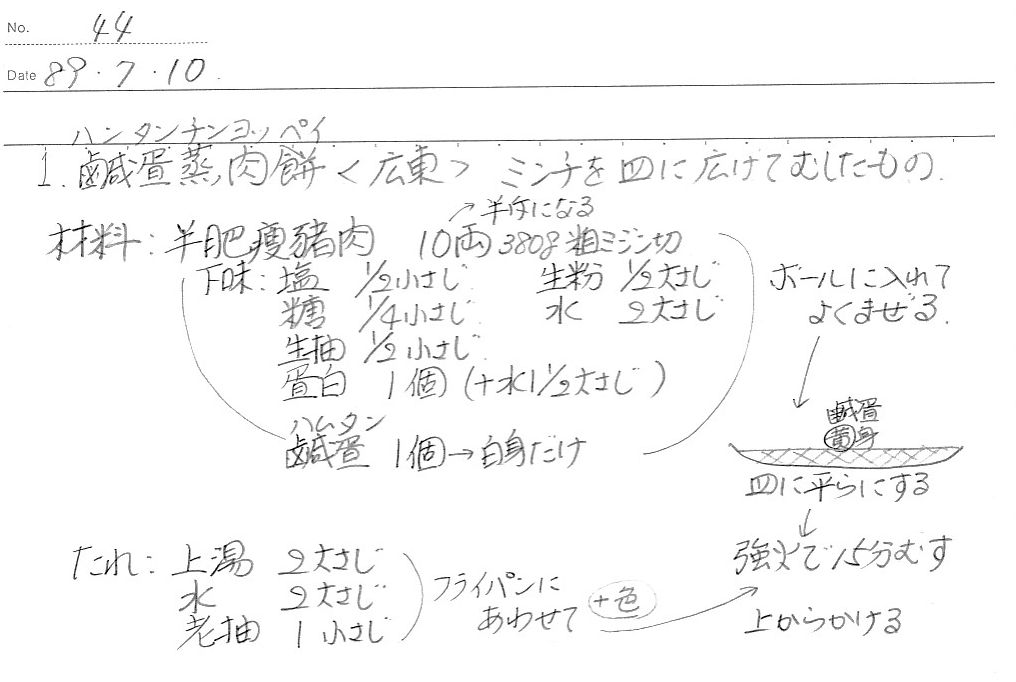 No. 44
Date 89・7・10.
ハンタンチンヨッペイ
1. 鹹蛋蒸肉餅<広東> ミンチを皿に広げてむしたもの.
→半斤になる
材料: 半肥瘦豬肉 10両 380g 粗ミジン切
下味: 塩 1/2小さじ 生粉 1/2大さじ
糖 1/4小さじ 水 2大さじ
生抽 1/2小さじ
蛋白 1個 (+水1 1/2大さじ)
ハムタン
鹹蛋 1個→白身だけ
ボールに入れて
よくまぜる.
鹹蛋
黄身
皿に平らにする
強火で15分むす
上からかける
たれ: 上湯 2大さじ
水 2大さじ
老抽 1小さじ
フライパンに
あわせて
+色